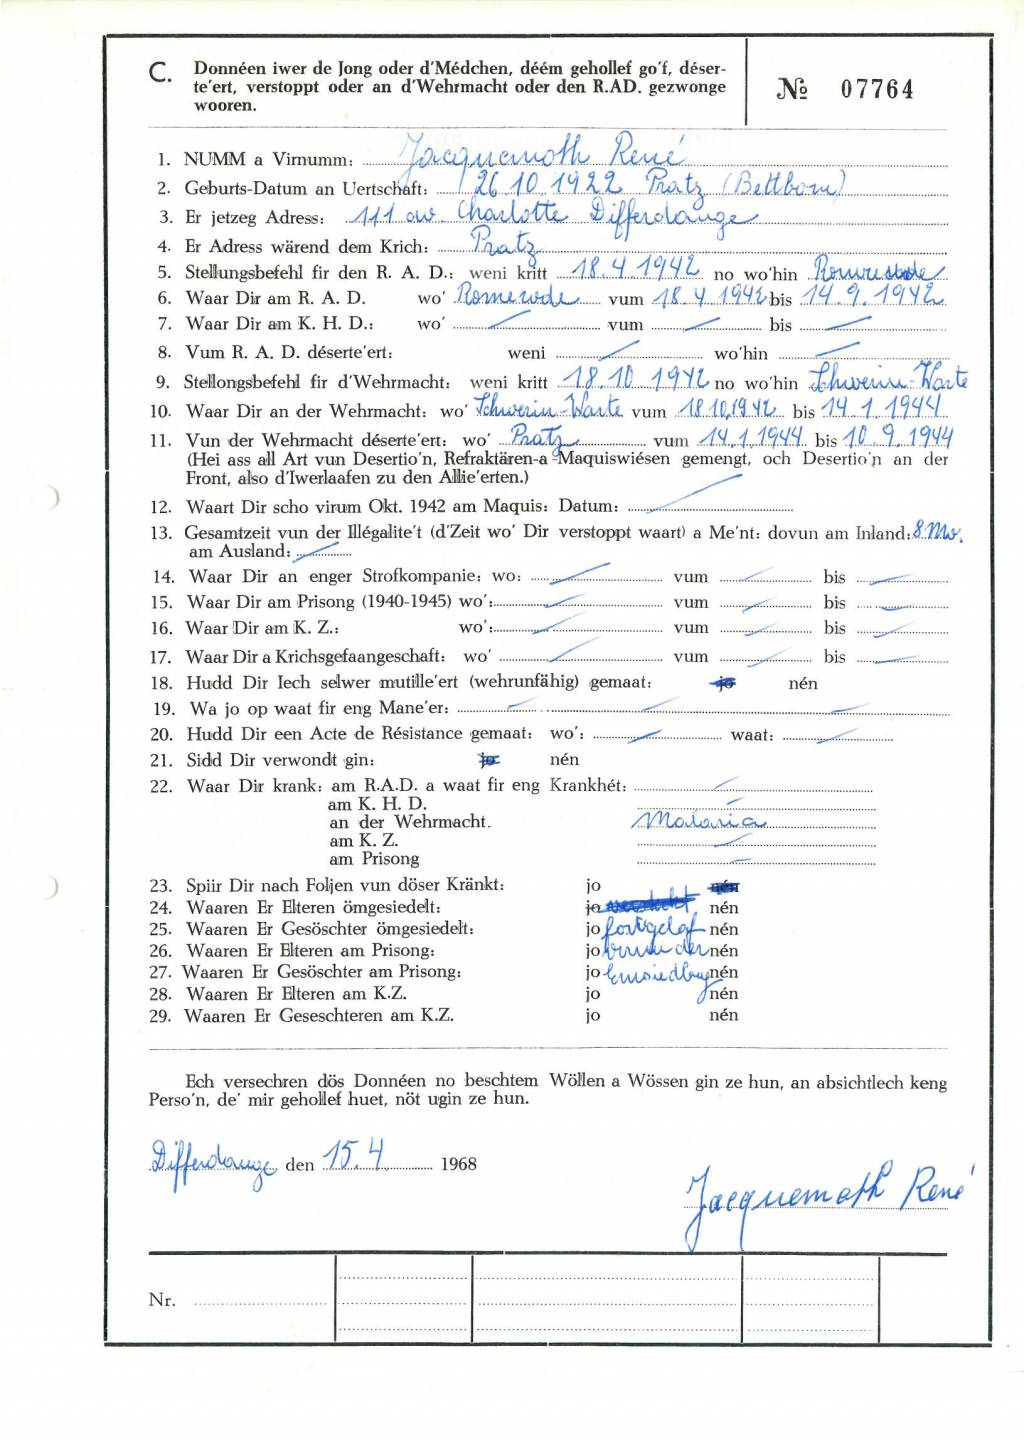 C. Donnéen iwer de Jong oder d'Médchen, déém gehollef go'f, déser-
te'ert, verstoppt oder an d'Wehrmacht oder den R.AD. gezwonge
wooren.
№ 07764
1. NUMM a Virnumm: Jacquemoth René
2. Geburts-Datum an Uertschaft: 26 10 1922 Pratz (Bettborn)
3. Er jetzeg Adress: 111 av. Charlotte Differdange
4. Er Adress wärend dem Krich: Pratz
5. Stellungsbefehl fir den R. A. D.: weni kritt 18.4 1942 no wo'hin
6. Waar Dir am R. A. D. wo' Romerode vum 18 4 1942 bis 14.9.1942
7. Waar Dir am K. H. D.: wo' vum bis
8. Vum R. A. D. déserte'ert: weni wo'hin
9. Stellongsbefehl fir d'Wehrmacht: weni kritt 18.10 1942 no wo'hin Schwerin-Warte
10. Waar Dir an der Wehrmacht: wo' Schwerin-Warte vum 18.10.1942 bis 14 1.1944
11. Vun der Wehrmacht déserte'ert: wo' Pratz vum 14.1.1944 bis 10 9.1944
(Hei ass all Art vun Desertio'n, Refraktären-a-Maquiswiésen gemengt, och Desertio'n an der
Front, also d'Iwerlaafen zu den Allie'erten.)
12. Waart Dir scho virum Okt. 1942 am Maquis: Datum:
13. Gesamtzeit vun der Illégalite't (d'Zeit wo' Dir verstoppt waart) a Me'nt: dovun am Inland: 8 Mo.
am Ausland:
14. Waar Dir an enger Strofkompanie: wo: vum bis
15. Waar Dir am Prisong (1940-1945) wo': vum bis
16. Waar Dir am K. Z.: wo': vum bis
17. Waar Dir a Krichsgefaangeschaft: wo' vum bis
18. Hudd Dir Iech selwer mutille'ert (wehrunfähig) gemaat: jo nén
19. Wa jo op waat fir eng Mane'er:
20. Hudd Dir een Acte de Résistance gemaat: wo': waat:
21. Sidd Dir verwondt gin: jo nén
22. Waar Dir krank: am R.A.D. a waat fir eng Krankhét:
am K. H. D.
an der Wehrmacht. Malaria
am K. Z.
am Prisong
23. Spiir Dir nach Foljen vun döser Kränkt: jo nén
24. Waaren Er Elteren ömgesiedelt: jo nén
25. Waaren Er Gesöschter ömgesiedelt: jo fortgelaf nén
26. Waaren Er Elteren am Prisong: jo der nén
27. Waaren Er Gesöschter am Prisong: jo nén
28. Waaren Er Elteren am K.Z. jo nén
29. Waaren Er Geseschteren am K.Z. jo nén
Ech versechren dös Donnéen no beschtem Wöllen a Wössen gin ze hun, an absichtlech keng
Perso'n, de' mir gehollef huet, nöt ugin ze hun.
Differdange den 15.4. 1968
Jacquemoth René
Nr.